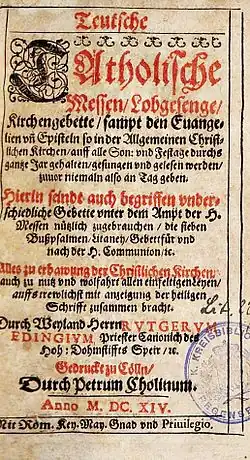 Teutsche
CAtholische
Messen/ Lobgesenge/
Kirchengebette/ sampt den Euange-
lien vñ Episteln so in der Allgemeinen Christ-
lichen Kirchen/ auff alle Son: vnd Festage durchs
gantze Jar gehalten/ gesungen vnd gelesen werden/
zuuor niemaln also an Tag geben.
Hierin seinde auch begriffen vnder-
schiedliche Gebette vnter dem Ampt der H.
Messen nützlich zugebrauchen / die sieben
Bußpsalmen/ Litaney/ Gebett für vnd
nach der H. Communion/ ꝛc.
Alles zu erbawung der Christlichen Kirchen/
auch zu nutz vnd wolfahrt allen einfeltigen Leyen/
auffs trewlichst mit anzeigung der heiligen
Schrifft zusammen bracht.
Durch Weyland Herrn RVTGERVM
EDINGIVM Priester Canonich des
Hoh: Dohmstiffts Speir/ ꝛc.
Gedruckt zu Cölln/
Durch Petrum Cholinum.
Anno M. DC. XIV.
Mit Röm. Key. May. Gnad vnd Priuilegio.
KREISBIBL